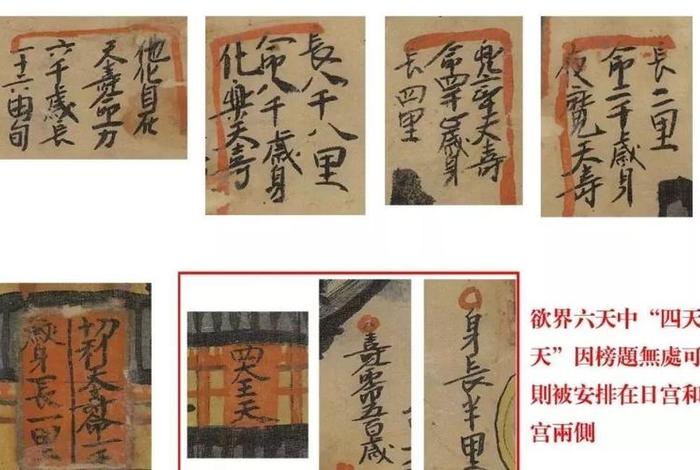 他化自在
天壽命一万
六千歲長
一十六由旬
化樂天壽
命八千歲身
長八千八里
兜率天壽
命四千歲身
長四里
夜魔天壽
命二千歲身
長二里
切利天壽命一千
歲身長一里
四大王天
壽命五百歲
身長半里
欲界六天中“四天
天”因榜題無處可
則被安排在日宮和
宮兩側